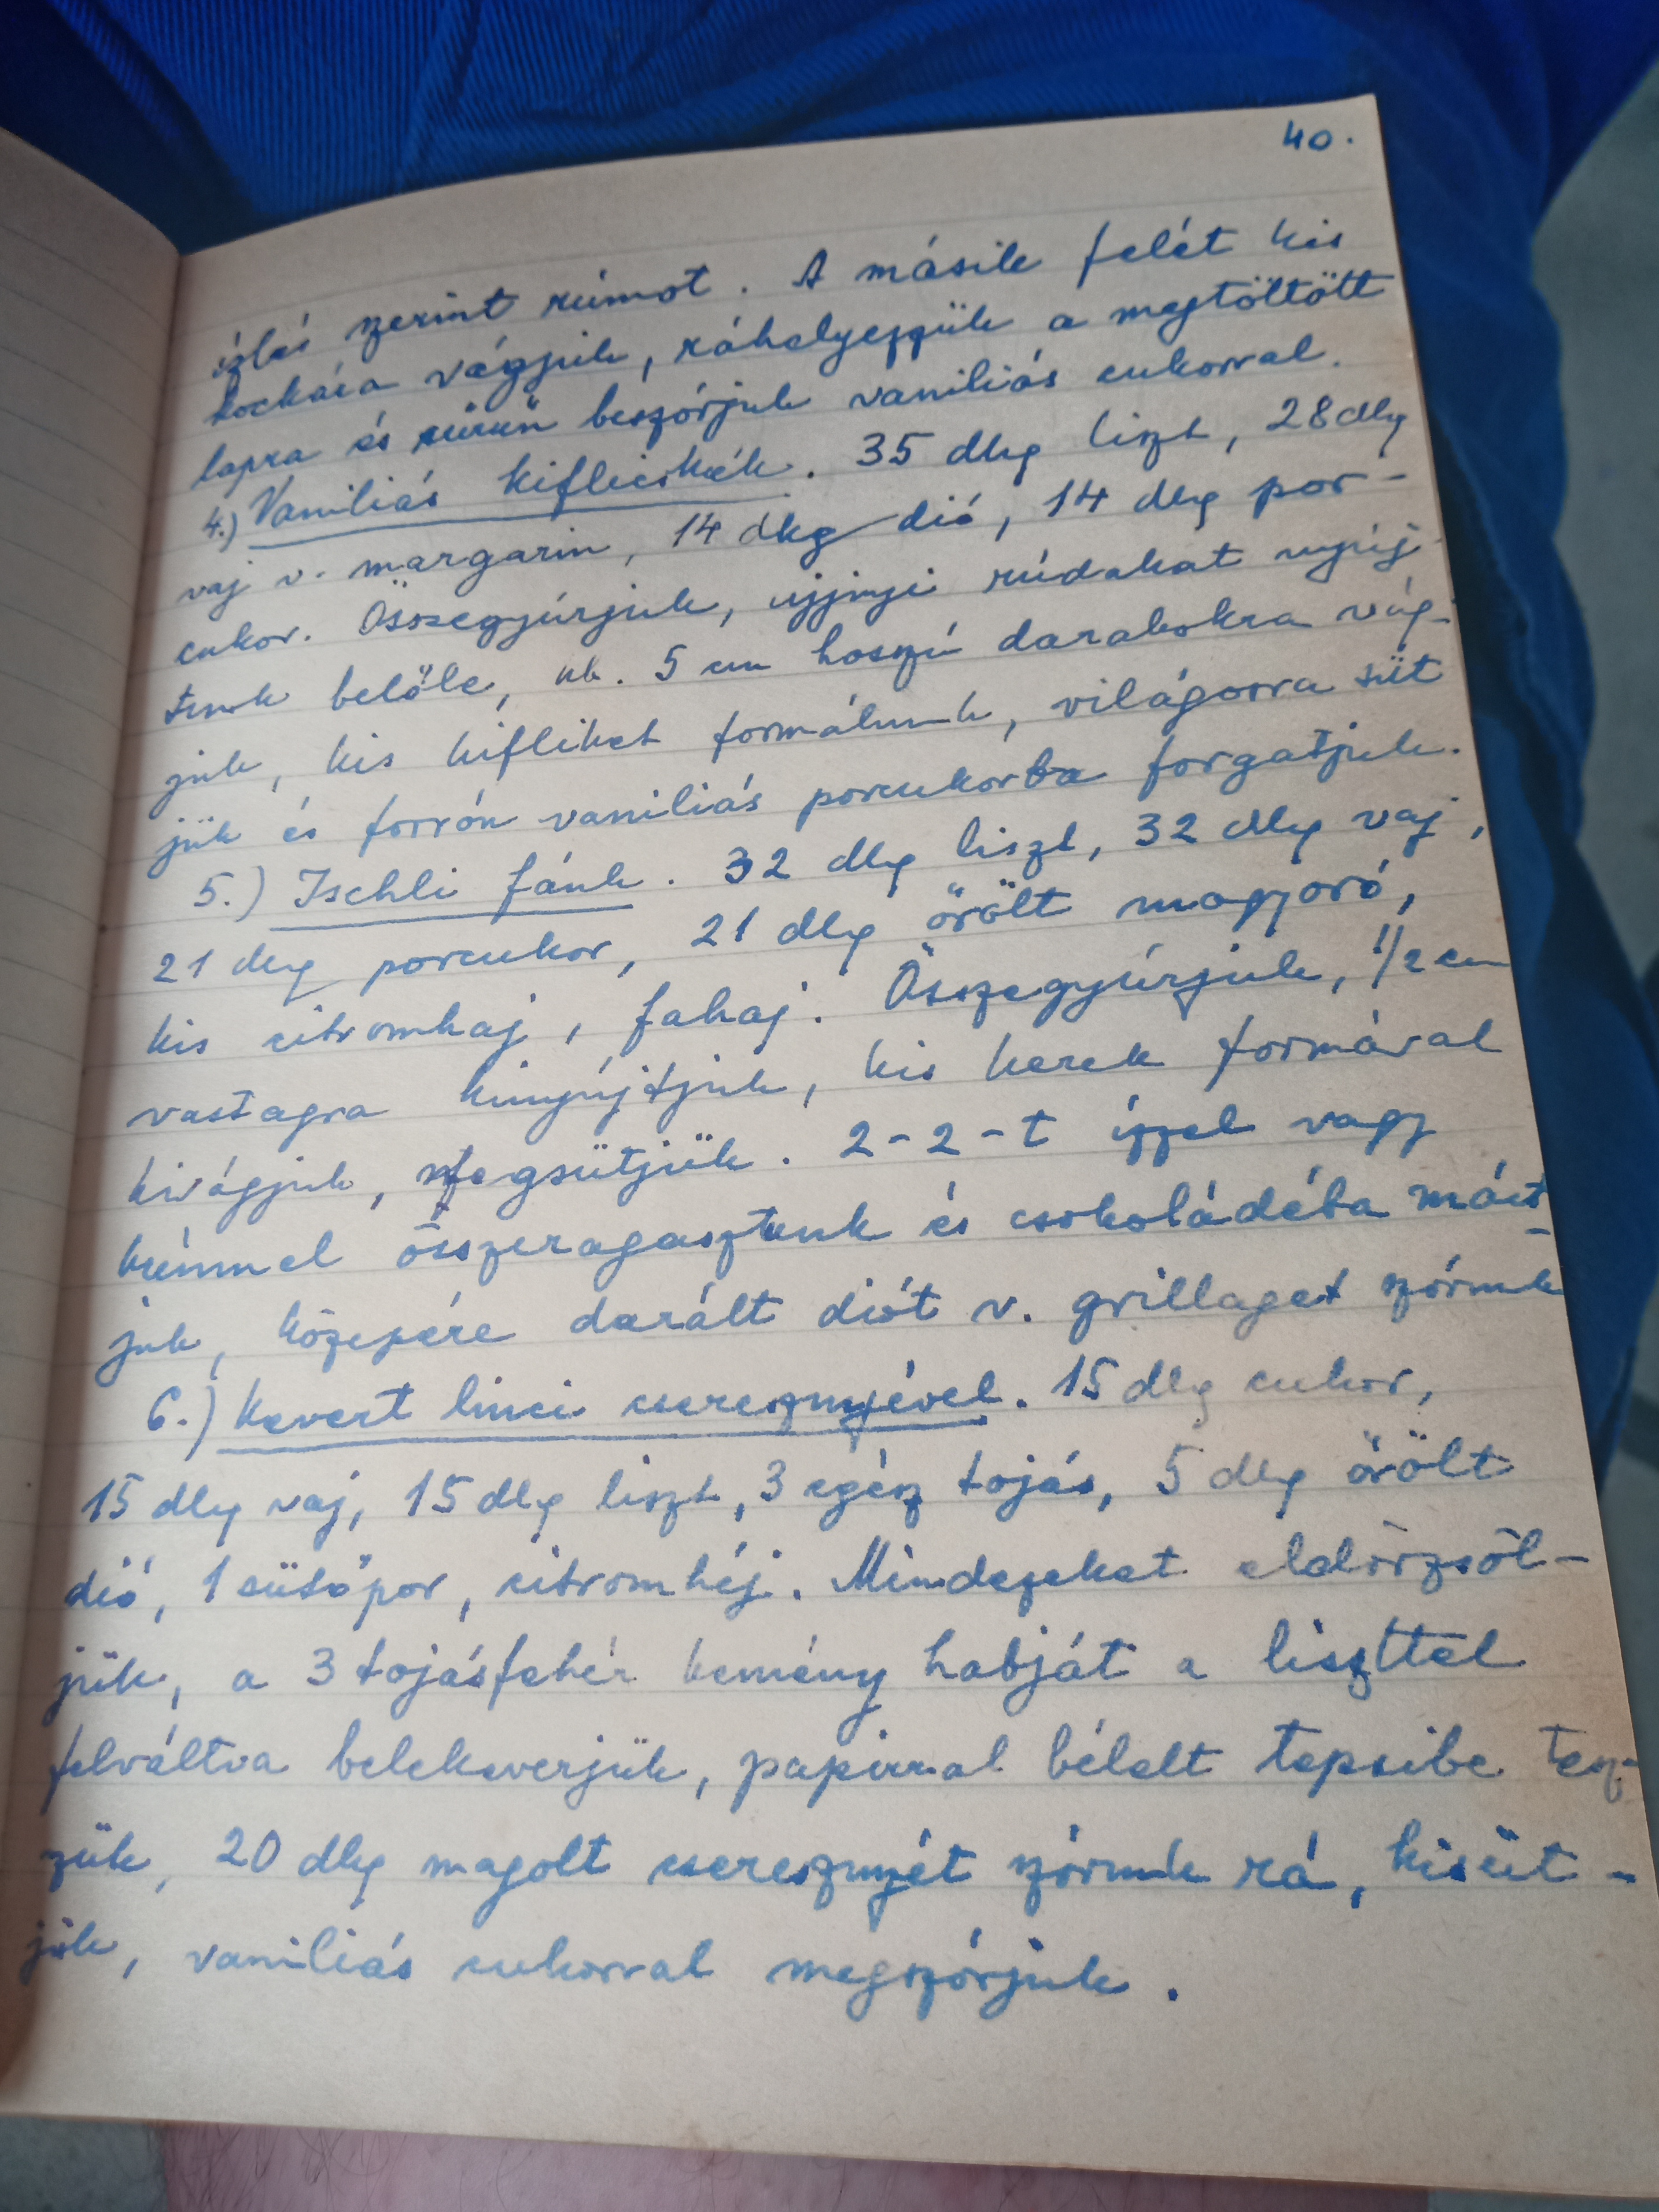 40.
ízlés szerint rúmot. A másik felét kis
kockára vágjuk, ráhelyezzük a megtöltött
lapra és sürün beszórjuk vaniliás cukorral.
4.) Vaniliás kiflicskék. 35 dkg liszt, 28 dkg
vaj v. margarin, 14 dkg dió, 14 dkg por-
cukor. Összegyúrjuk, ujjnyi rúdakat nyúj-
tunk belőle, kb. 5 cm hoszú darabokra vág-
juk, kis kifliket formálunk, világosra süt
jük és forrón vaniliás porcukorba forgatjuk.
5.) Ischli fánk. 32 dkg liszt, 32 dkg vaj,
21 dkg porcukor, 21 dkg örölt mogyoró,
kis citromhaj, fahaj. Összegyúrjuk, 1/2 cm
vastagra kinyújtjuk, kis kerek formával
kivágjuk, megsütjük. 2-2-t ízzel vagy
krémmel összeragasztunk és csokoládéba márt-
juk, közepére darált diót v. grillaget szórunk
6.) Kevert linci cseresznyével. 15 dkg cukor,
15 dkg vaj, 15 dkg liszt, 3 egész tojás, 5 dkg örölt
dió, 1 sütőpor, citromhéj. Mindezeket eldörzsöl-
jük, a 3 tojásfehér kemény habját a liszttel
felváltva belekeverjük, papirral bélelt tepsibe tesz-
szük, 20 dkg magolt cseresznyét szórunk rá, kisüt-
jük, vaniliás cukorral megszórjuk.